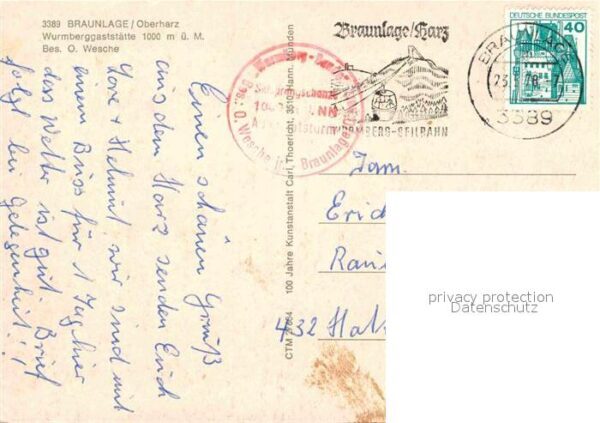 3389 BRAUNLAGE/Oberharz
Wurmberggaststätte 1000 m ü. M.
Bes. O. Wesche
Einen schönen Gruß
aus dem Harz senden Euch
Lore + Helmut wir sind mit
einem Bus für 1 Tag hier
das Wetter ist gut. Brief
folgt bei Gelegenheit!!
CTM 100 Jahre Kunstanstalt Carl Thoericht, 3510 Hann. Münden
Bes.: O. Wesche Braunlage
Braunlage/Harz
WURMBERG-SEILBAHN
BRAUNLAGE
3389
DEUTSCHE BUNDESPOST
40
Fam.
Eric
432 Hat
privacy protection
Datenschutz